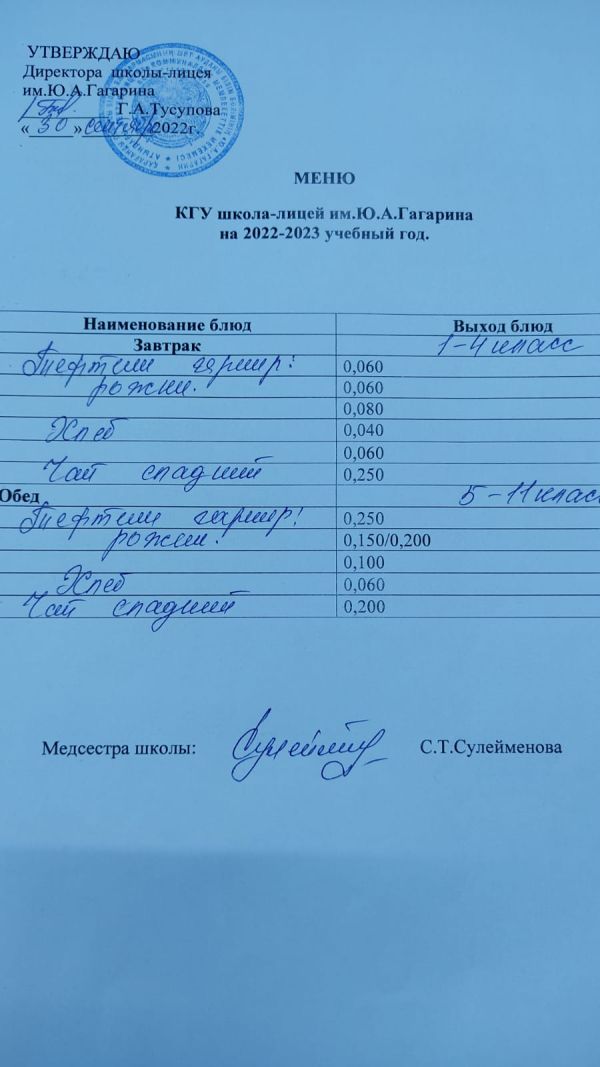 УТВЕРЖДАЮ
Директора школы-лицея
им.Ю.А.Гагарина
Г.А.Тусупова
« 30 » сентября 2022г.
МЕНЮ
КГУ школа-лицей им.Ю.А.Гагарина
на 2022-2023 учебный год.
Наименование блюд Выход блюд
Завтрак 1-4 класс
Тефтели гарнир: 0,060
рожки. 0,060
0,080
Хлеб 0,040
0,060
Чай сладкий 0,250
Обед 5-11 класс
Тефтели гарнир: 0,250
рожки. 0,150/0,200
0,100
Хлеб 0,060
Чай сладкий 0,200
Медсестра школы: С.Т.Сулейменова